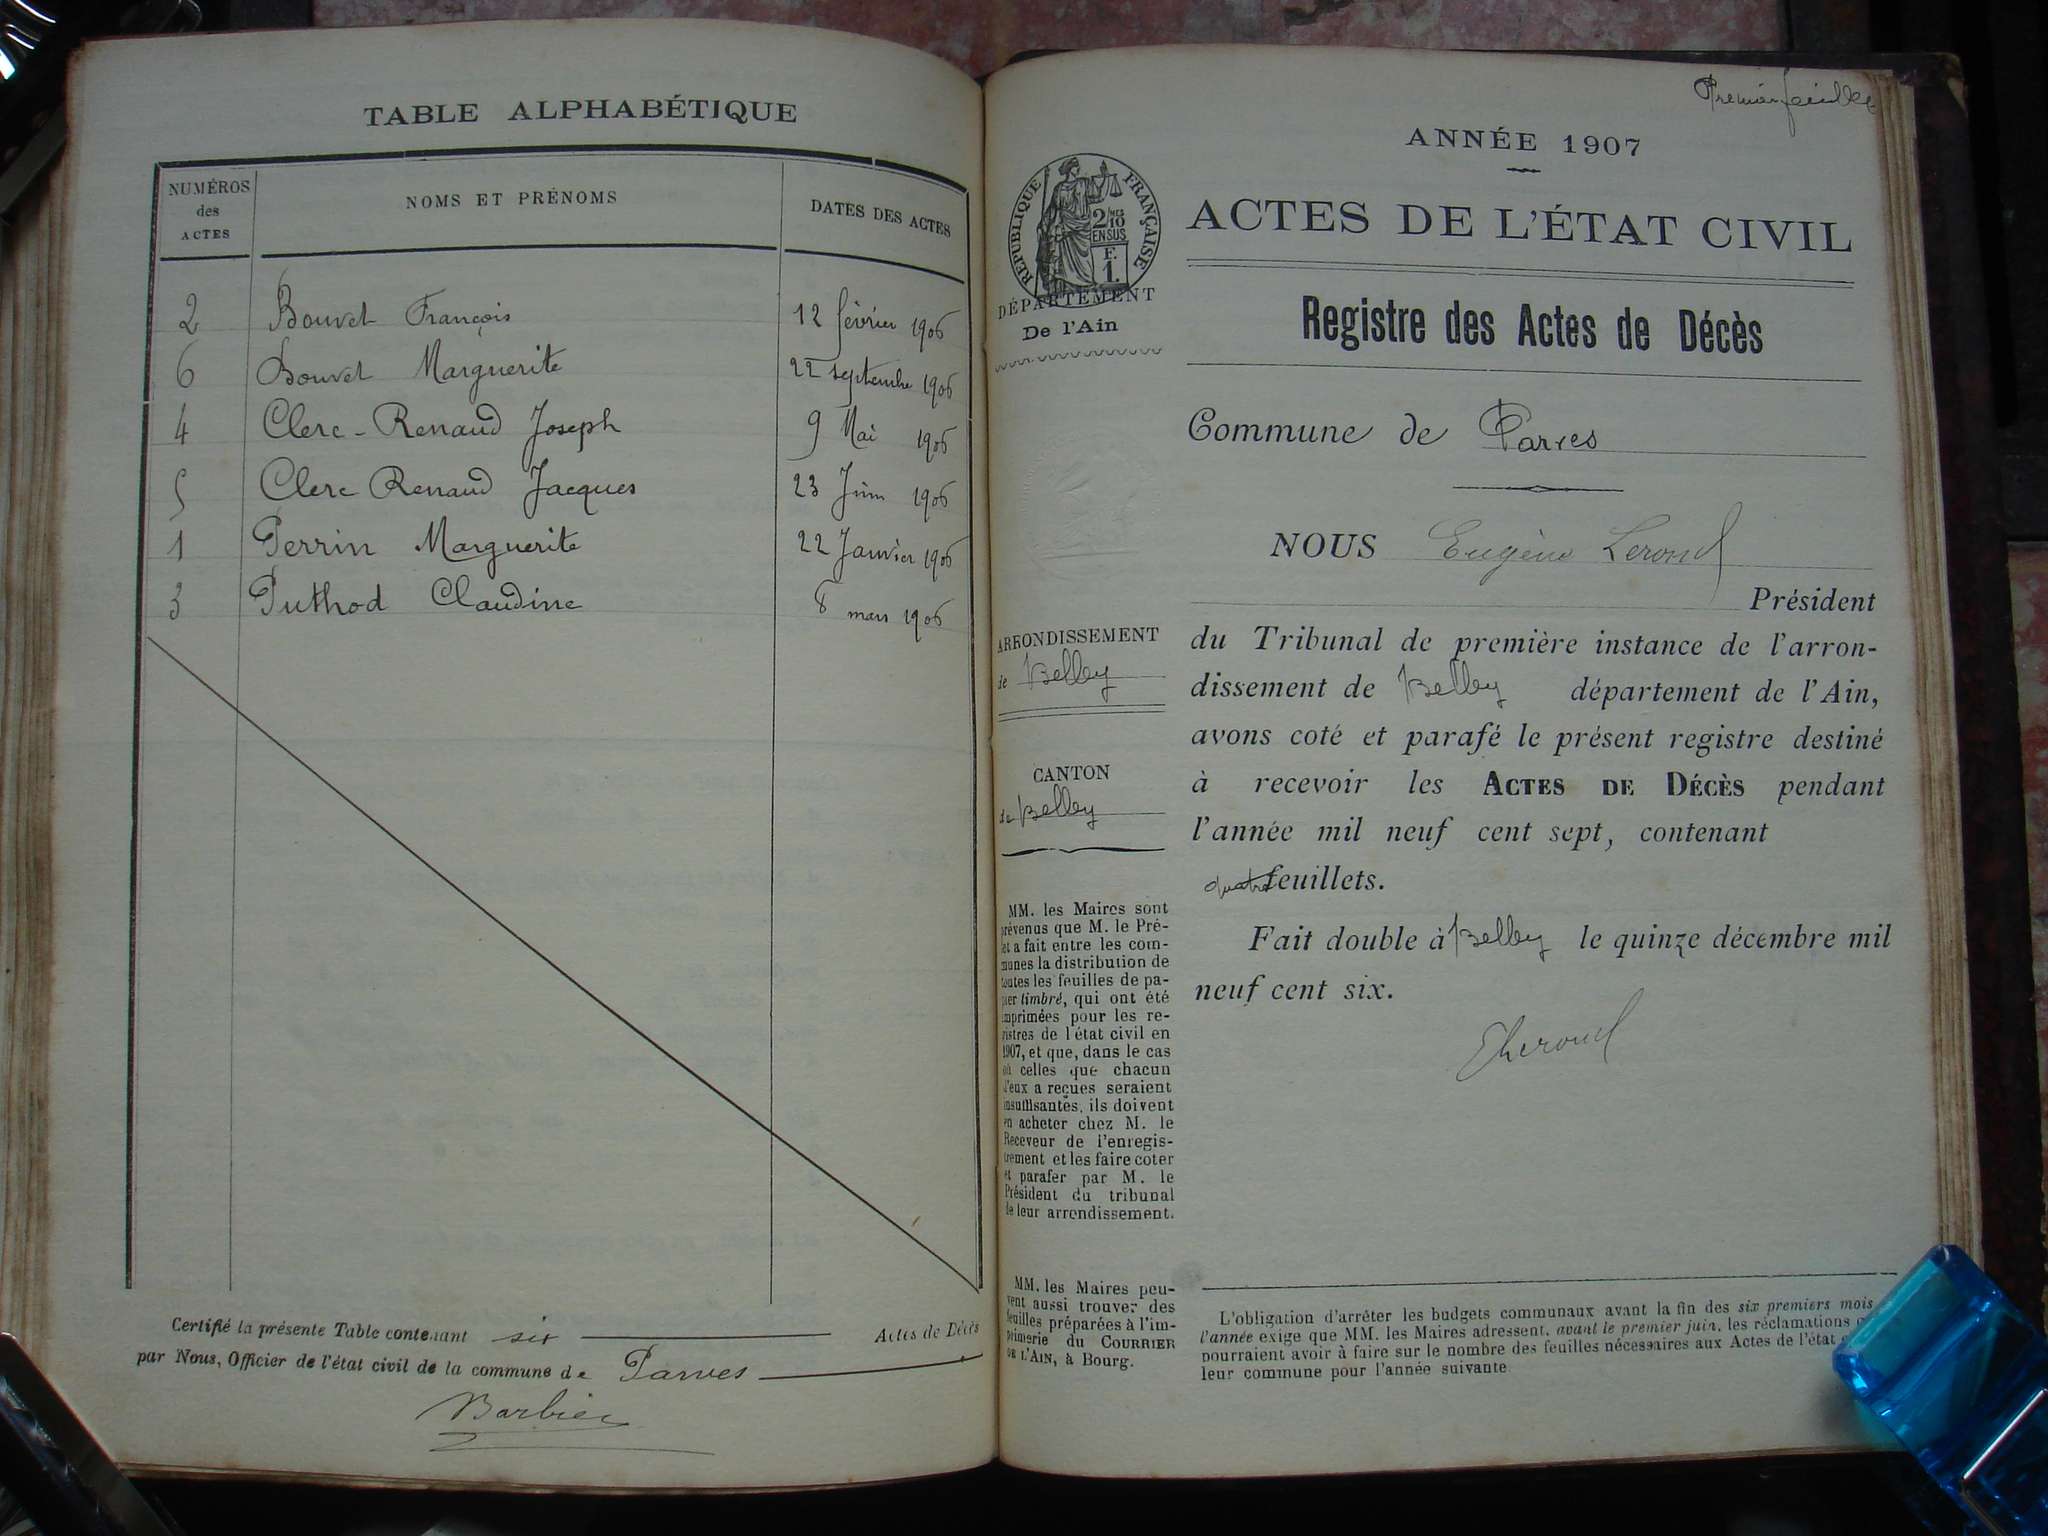 TABLE ALPHABÉTIQUE
NUMÉROS des ACTES
NOMS ET PRÉNOMS
DATES DES ACTES
2 Bouvet François 12 février 1906
6 Bouvet Marguerite 22 septembre 1906
4 Clerc-Renaud Joseph 9 Mai 1906
5 Clerc Renaud Jacques 23 Juin 1906
1 Perrin Marguerite 22 Janvier 1906
3 Puthod Claudine 8 mars 1906
Certifié la présente Table contenant six Actes de Décès
par Nous, Officier de l'état civil de la commune de Parves
Barbier
Premier feuillet
ANNÉE 1907
RÉPUBLIQUE FRANÇAISE
2/10 MES
EN SUS
F.
1.
ACTES DE L'ÉTAT CIVIL
DÉPARTEMENT
De l'Ain
Registre des Actes de Décès
Commune de Parves
NOUS Eugène Lerond
Président
ARRONDISSEMENT
de Belley
CANTON
de Belley
du Tribunal de première instance de l'arron-
dissement de Belley département de l'Ain,
avons coté et parafé le présent registre destiné
à recevoir les ACTES DE DÉCÈS pendant
l'année mil neuf cent sept, contenant
quatre feuillets.
Fait double à Belley le quinze décembre mil
neuf cent six.
ELerond
MM. les Maires sont
prévenus que M. le Pré-
fet a fait entre les com-
munes la distribution de
toutes les feuilles de pa-
pier timbré, qui ont été
imprimées pour les re-
gistres de l'état civil en
1907, et que, dans le cas
où celles que chacun
d'eux a reçues seraient
insuffisantes, ils doivent
en acheter chez M. le
Receveur de l'enregis-
trement et les faire coter
et parafer par M. le
Président du tribunal
de leur arrondissement.
MM. les Maires peu-
vent aussi trouver des
feuilles préparées à l'im-
primerie du COURRIER
DE L'AIN, à Bourg.
L'obligation d'arrêter les budgets communaux avant la fin des six premiers mois
l'année exige que MM. les Maires adressent, avant le premier juin, les réclamations
pourraient avoir à faire sur le nombre des feuilles nécessaires aux Actes de l'état
leur commune pour l'année suivante